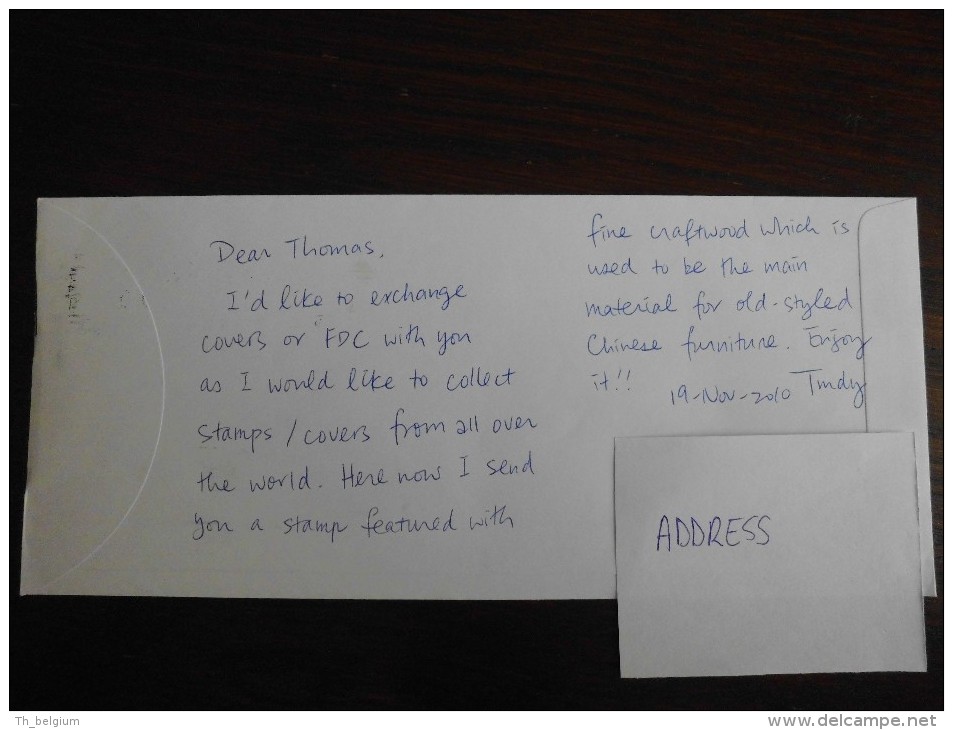 Dear Thomas,
I'd like to exchange
covers or FDC with you
as I would like to collect
stamps / covers from all over
the world. Here now I send
you a stamp featured with
fine craftwood which is
used to be the main
material for old-styled
Chinese furniture. Enjoy
it!!
19-Nov-2010
ADDRESS
Th_belgium
www.delcampe.net